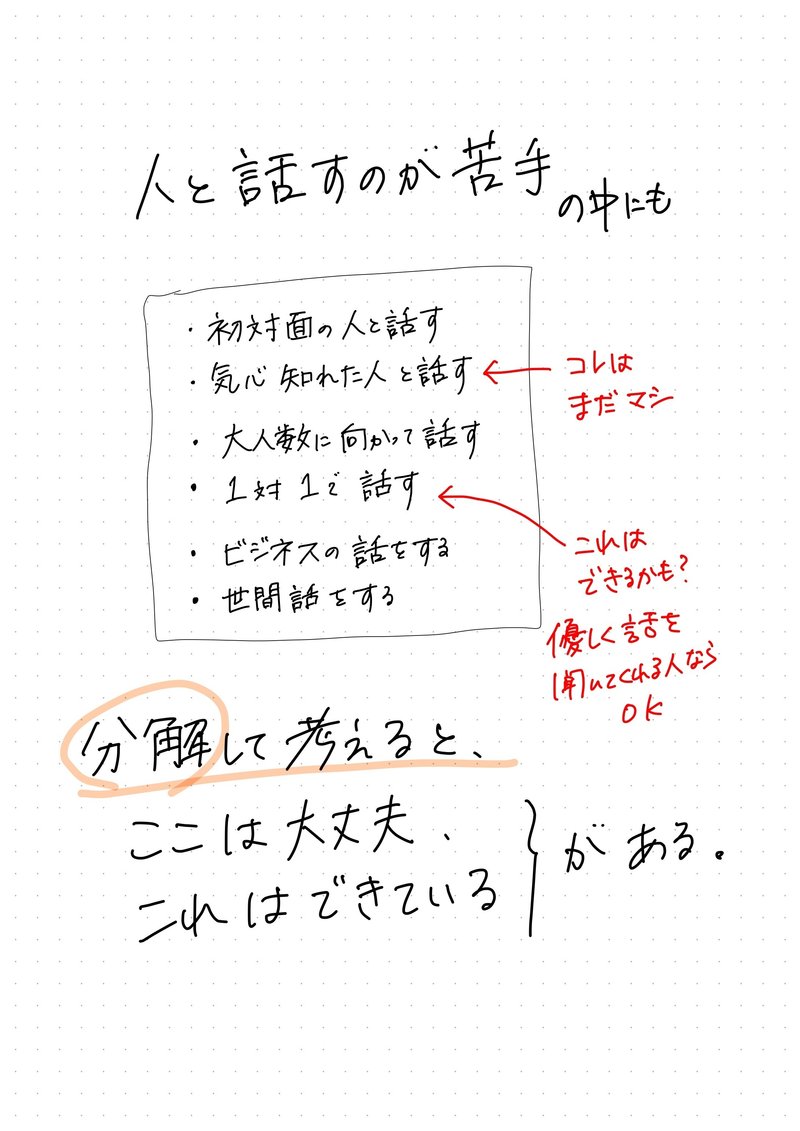 人と話すのが苦手の中にも
・初対面の人と話す
・気心知れた人と話す
コレは
まだマシ
・大人数に向かって話す
・1対1で話す
これは
できるかも?
優しく話を
聞いてくれる人なら
OK
・ビジネスの話をする
・世間話をする
分解して考えると、
ここは大丈夫、
これはできている
がある。